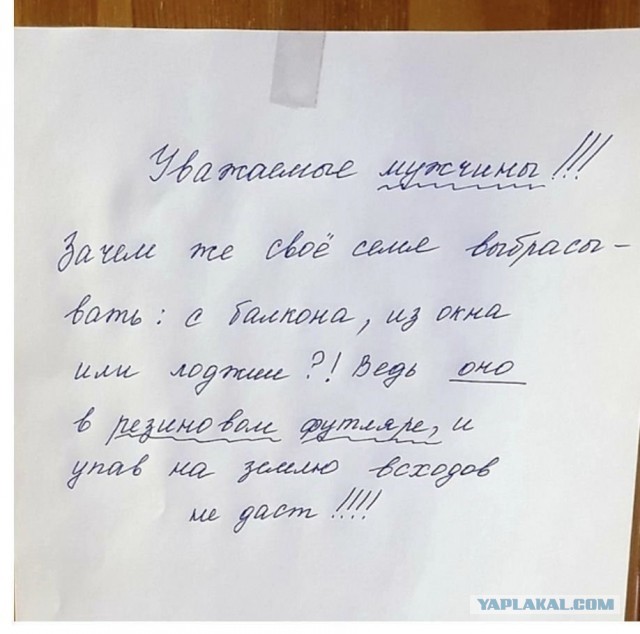 Уважаемые мужчины!!!
Зачем же своё семя выбрасы-
вать: с балкона, из окна
или лоджии?! Ведь оно
в резиновом футляре, и
упав на землю всходов
не даст!!!!
YAPLAKAL.COM